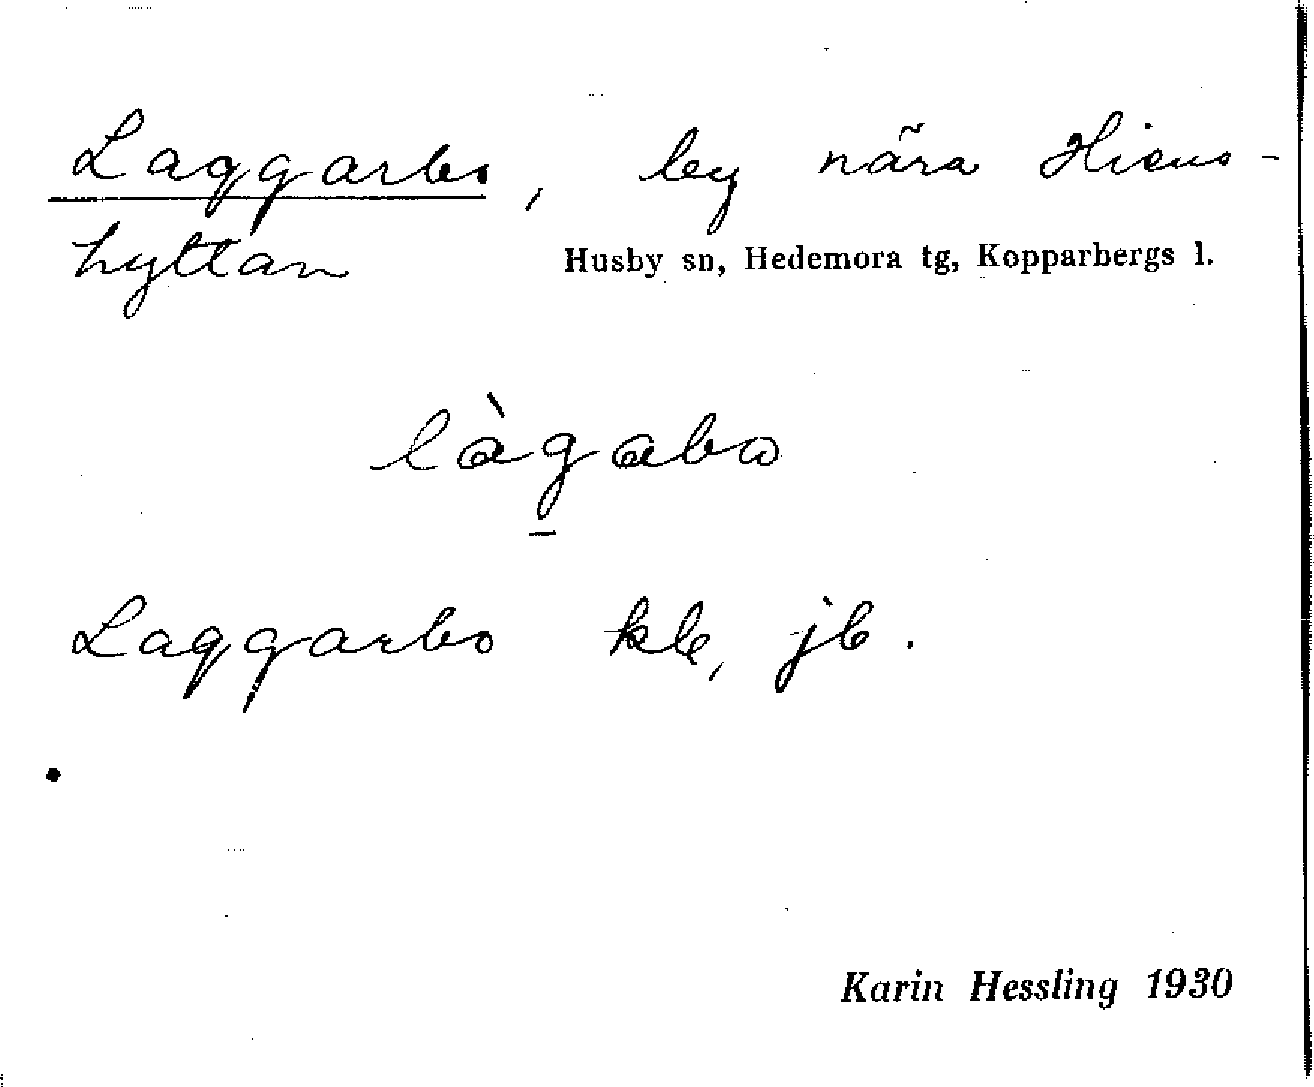 Laggarbo, by nära Hiens-
hyttan Husby sn, Hedemora tg, Kopparbergs l.
làgabo
Laggarbo kb, jb.
Karin Hessling 1930